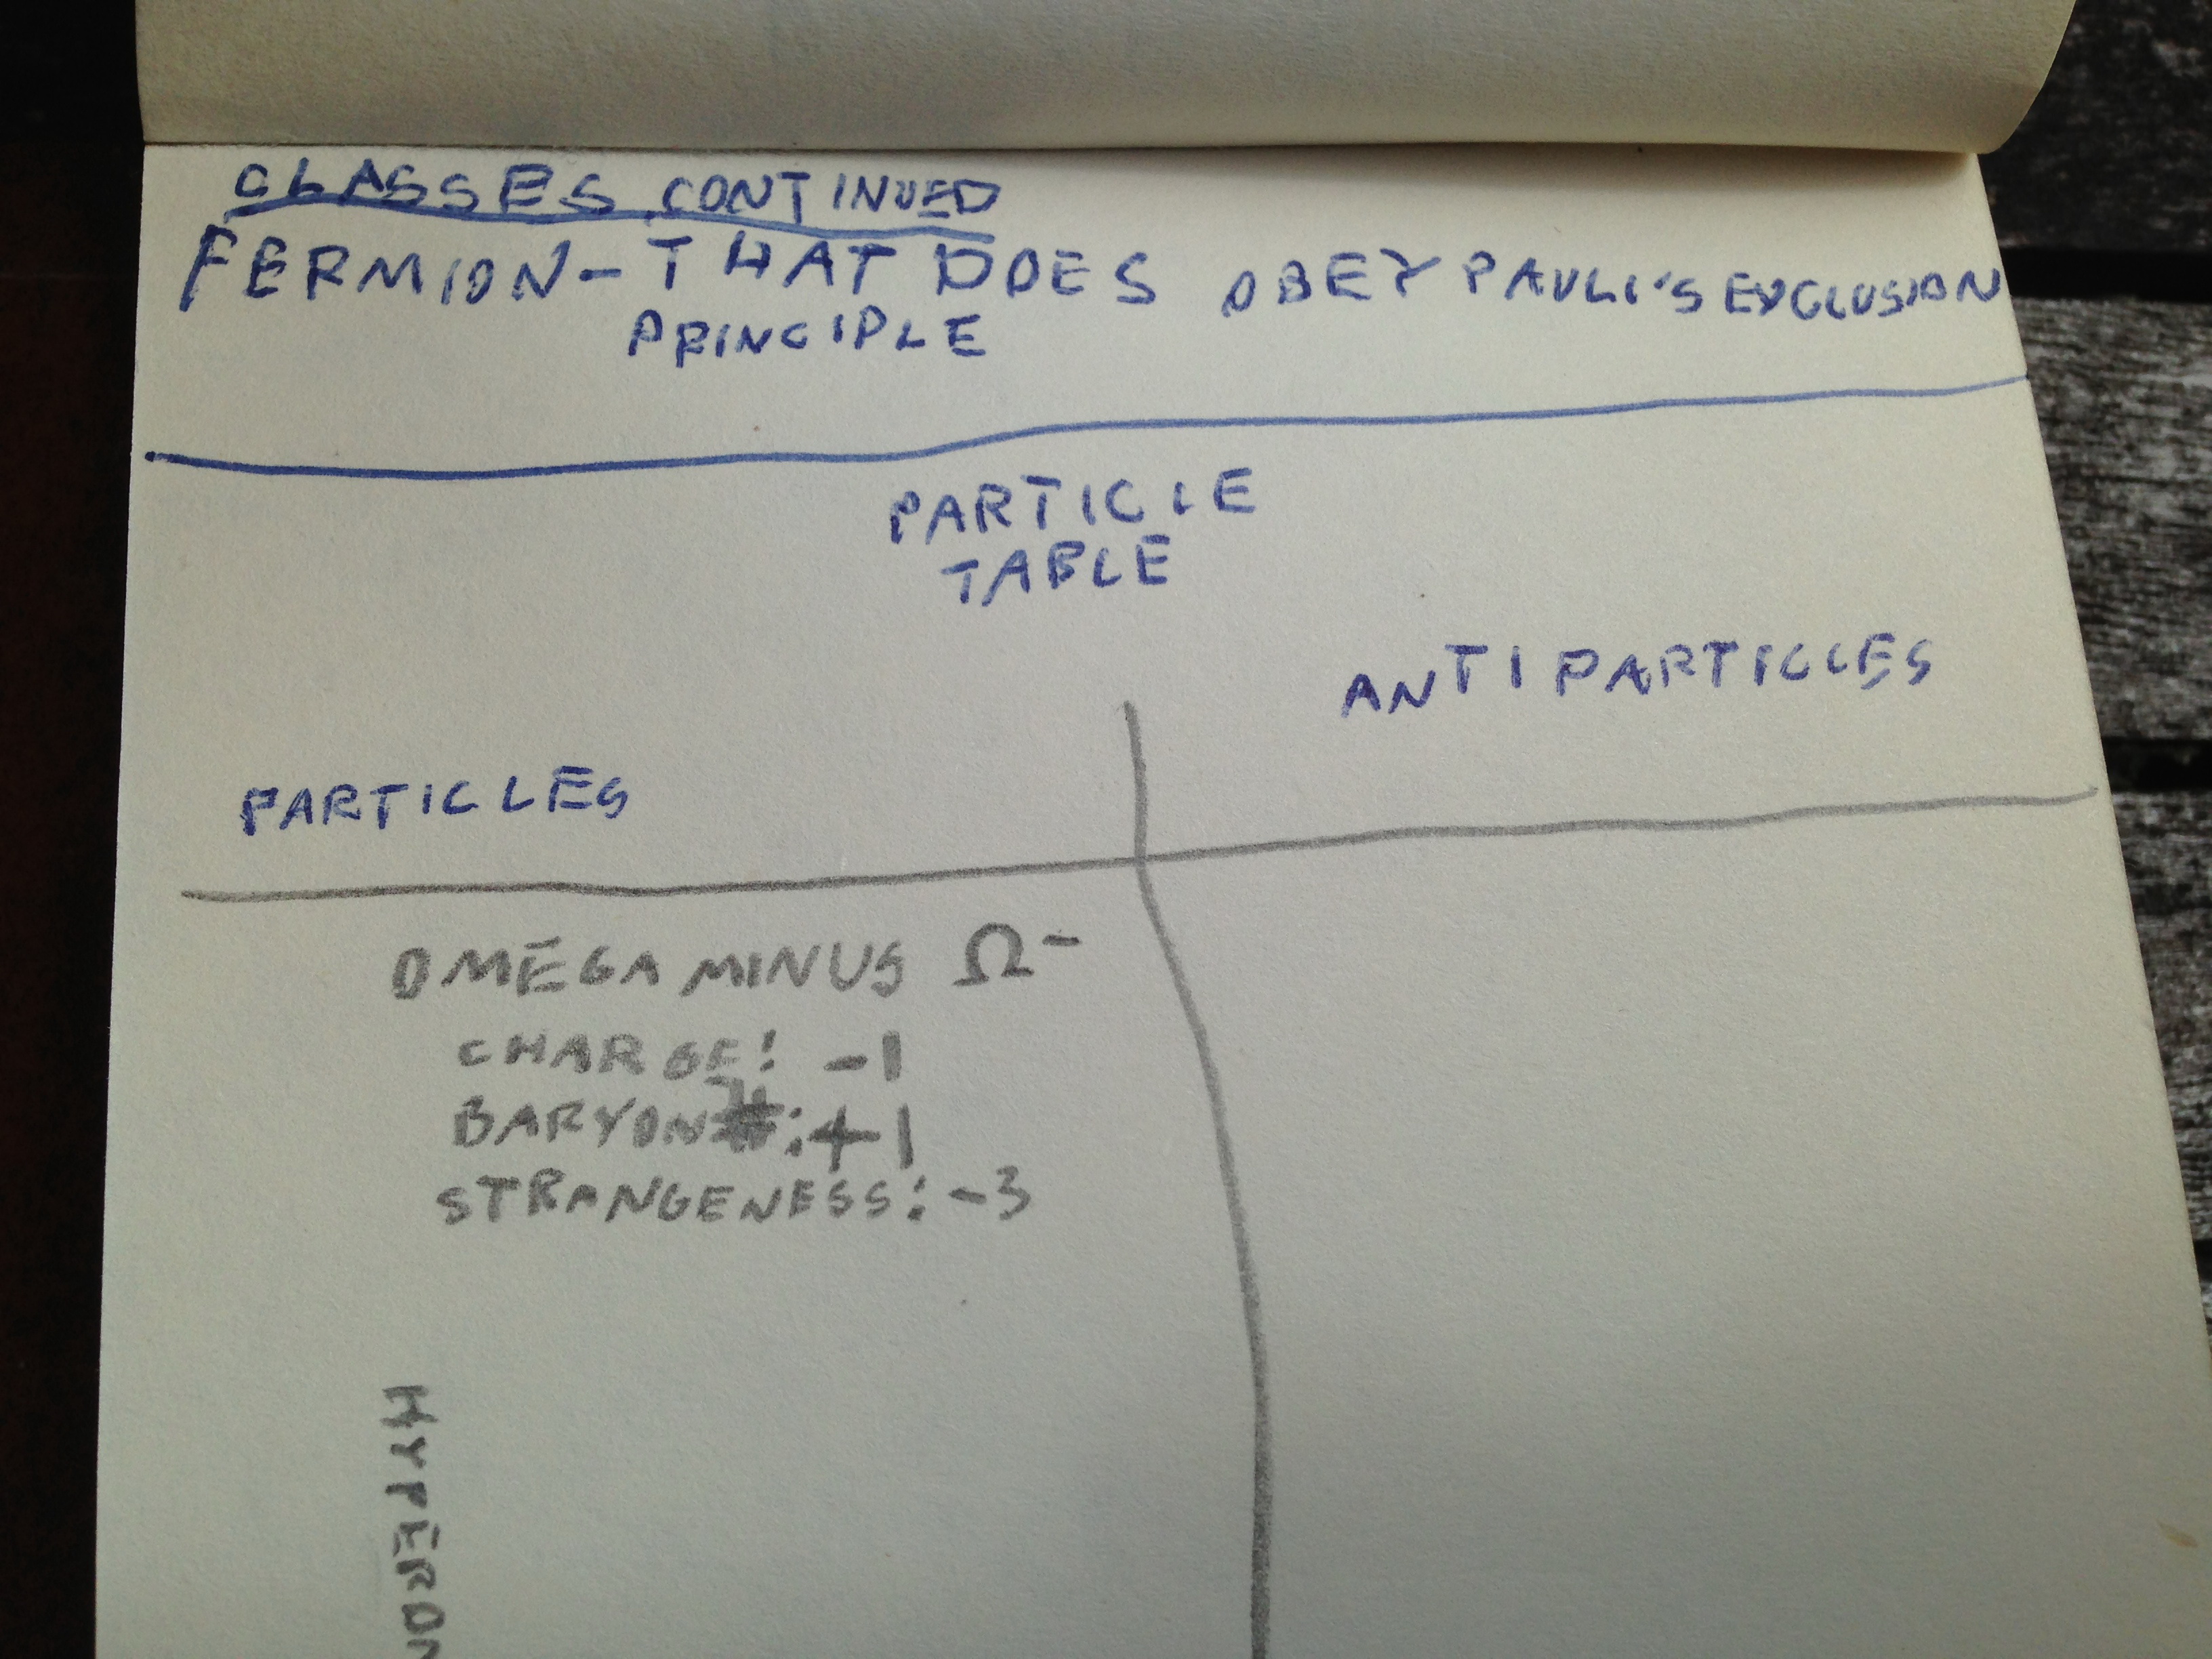 CLASSES CONTINUED
FERMION - THAT DOES OBEY PAULI'S EXCLUSION
PRINCIPLE
PARTICLE
TABLE
ANTIPARTICLES
PARTICLES
OMEGA MINUS Ω-
CHARGE: -1
BARYON #: +1
STRANGENESS: -3
HYPERON